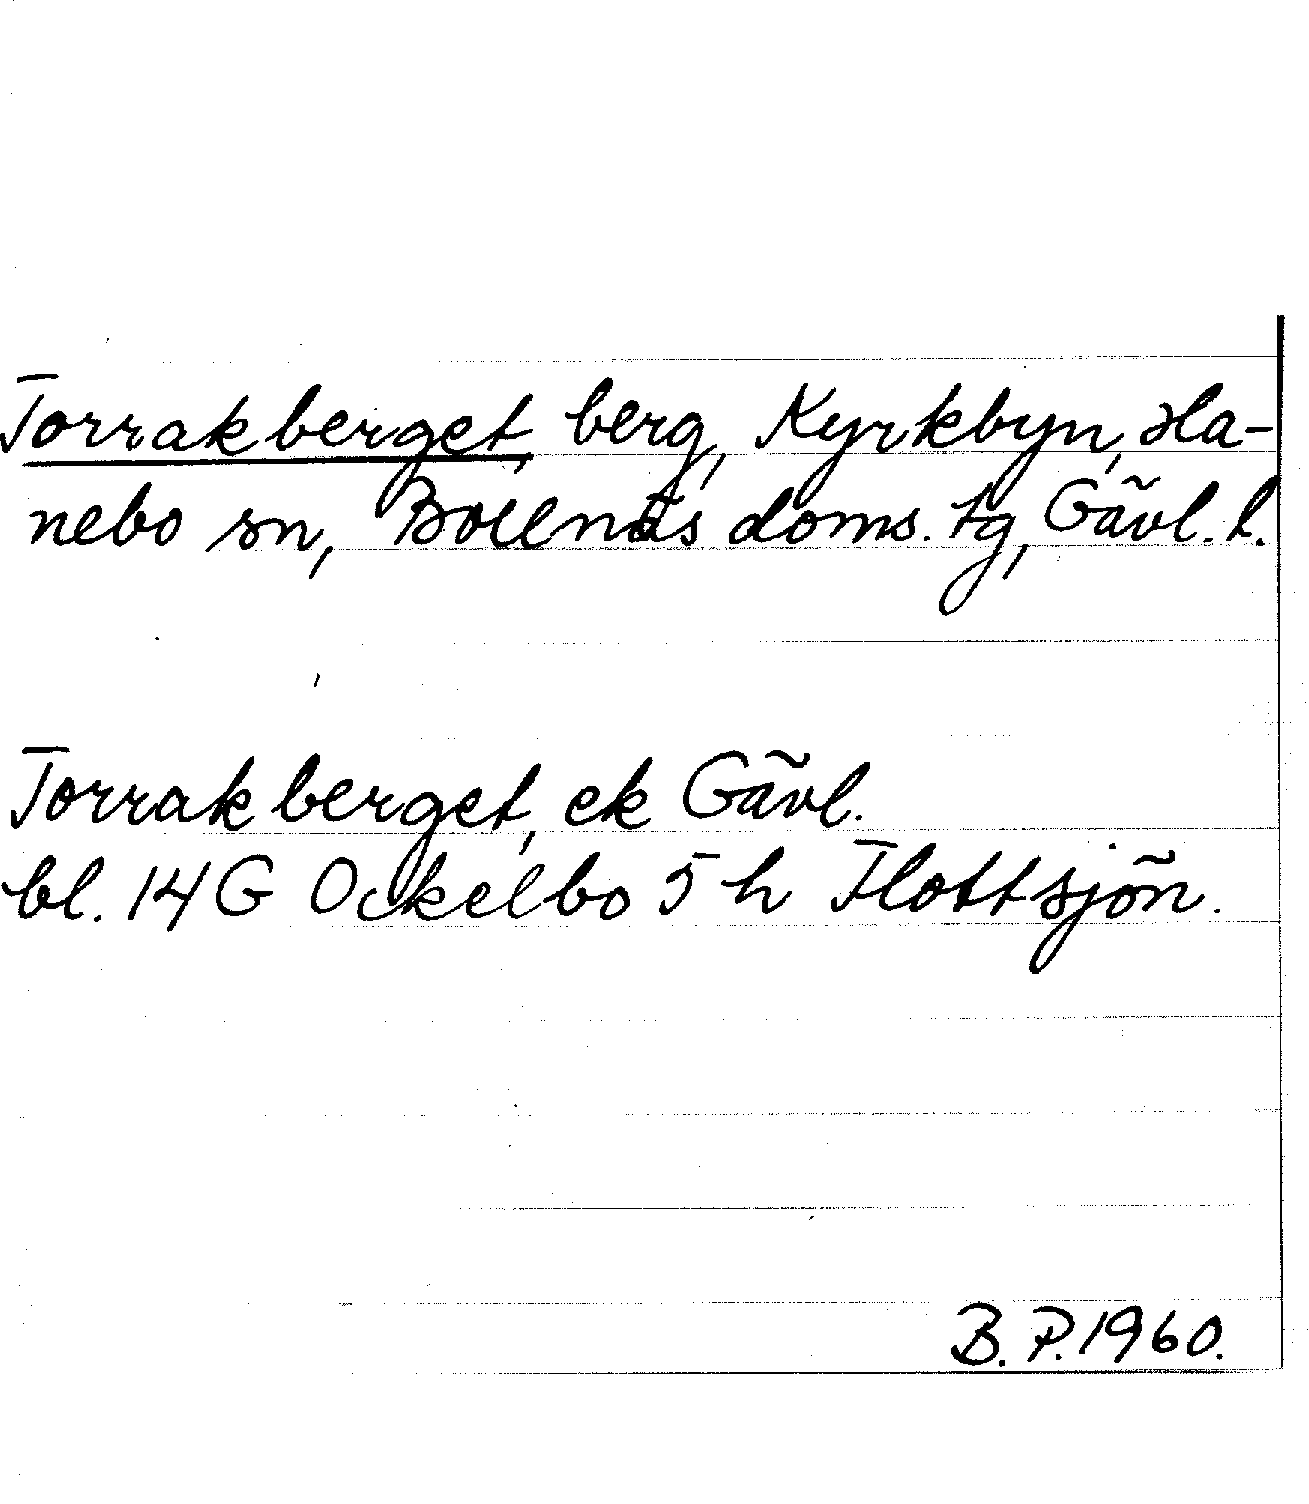 Torrakberget, berg, Kyrkbyn, Ha-
nebo sn, Bollnäs doms. tg, Gävl. l.
Torrakberget, ek Gävl.
bl. 14G Ockelbo 5 h Flottsjön.
B. P. 1960.